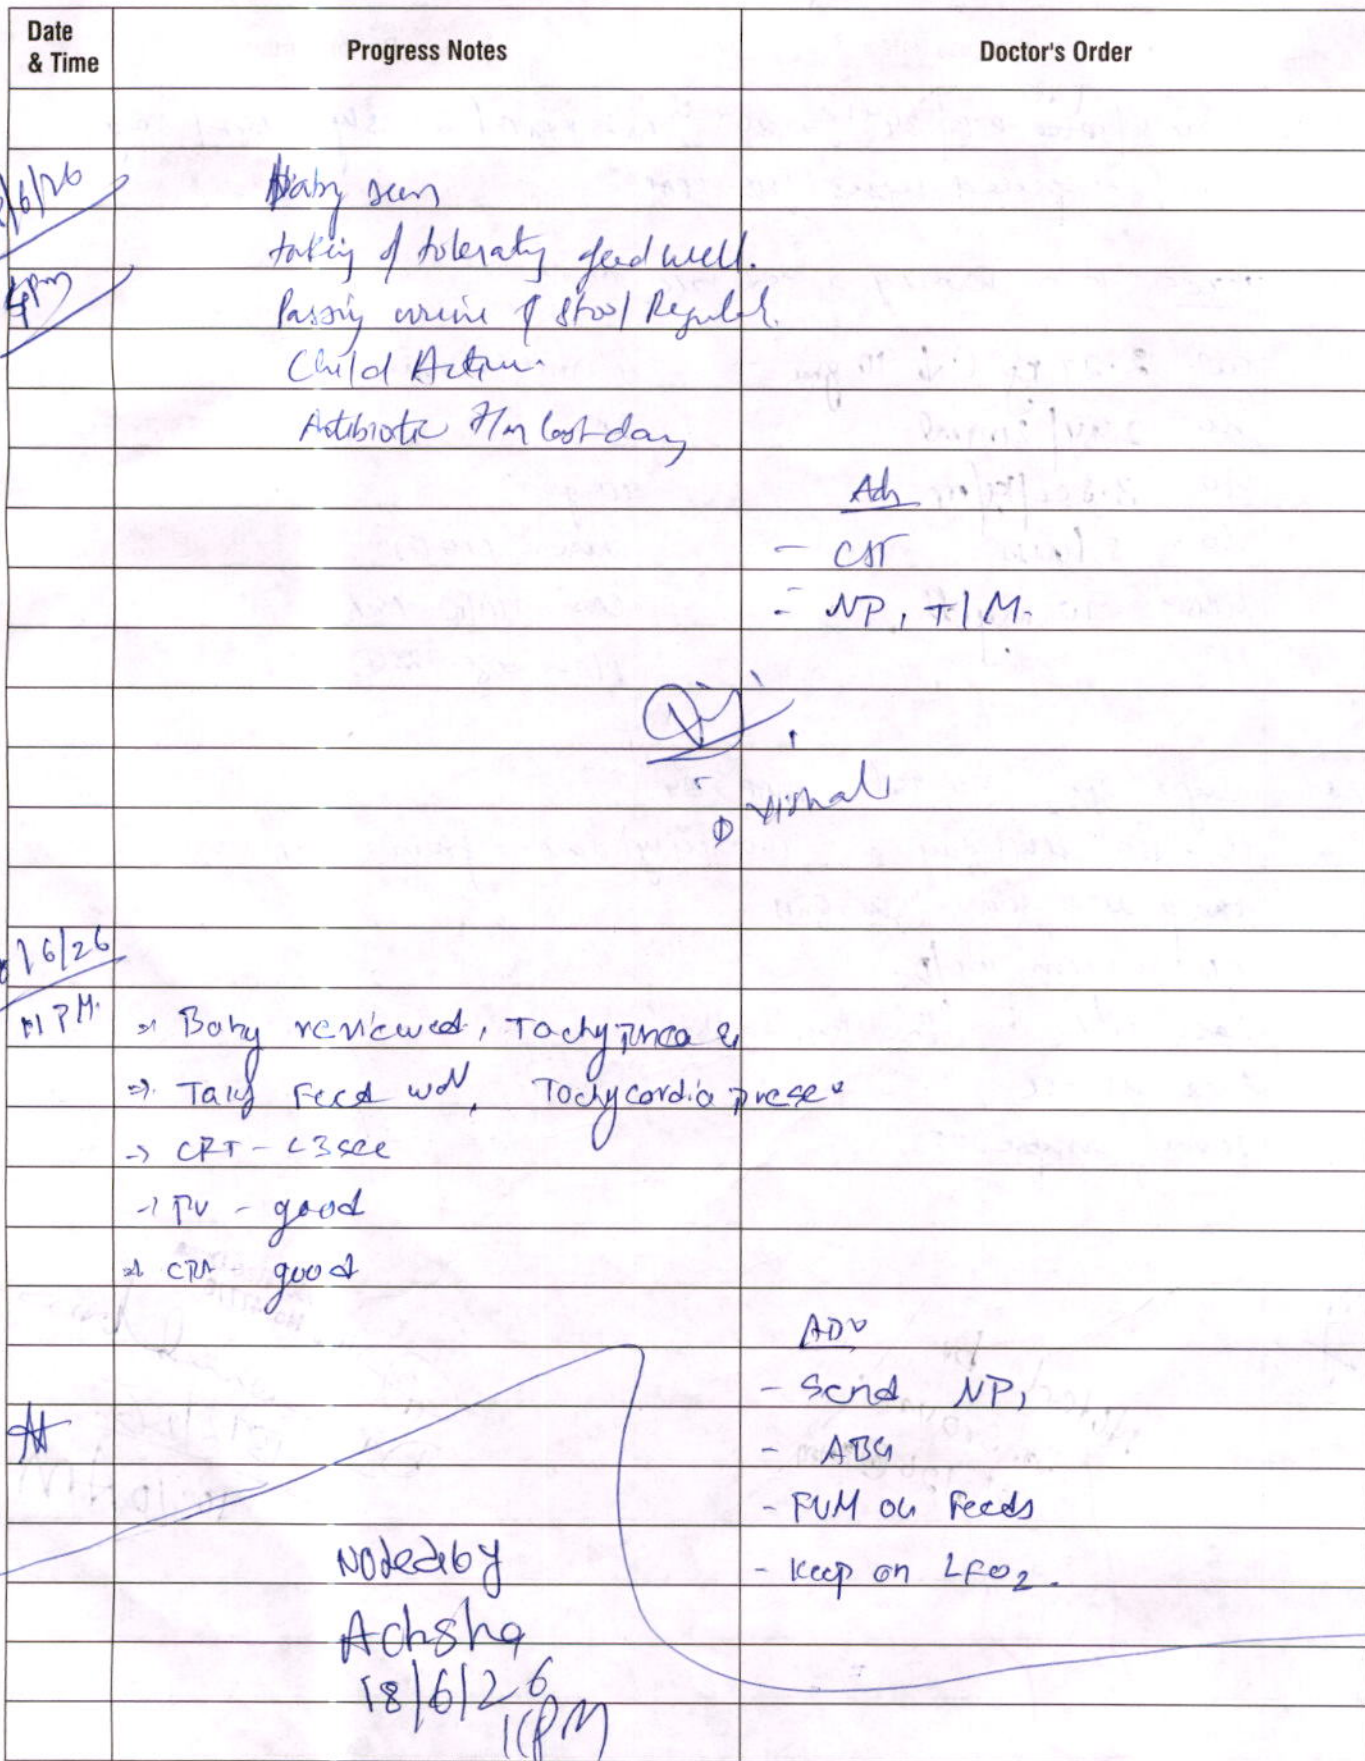 Date & Time
Progress Notes
Doctor's Order
/6/26
4pm
Baby seen
taking & tolerating feed well.
Passing urine & stool Regular.
Child Active
Antibiotic last day
Adv
- CST
- NP, T/M.
Vishal
/6/26
11 PM.
→ Baby reviewed, Tachypnea
→ Taking Feed well, Tachycardia present
→ CRT - <3 sec
→ PV - good
→ good
ADV
- Send NP,
- ABG
- on Feeds
- Keep on LFO2.
Noted by
Achsha
18/6/26
11PM